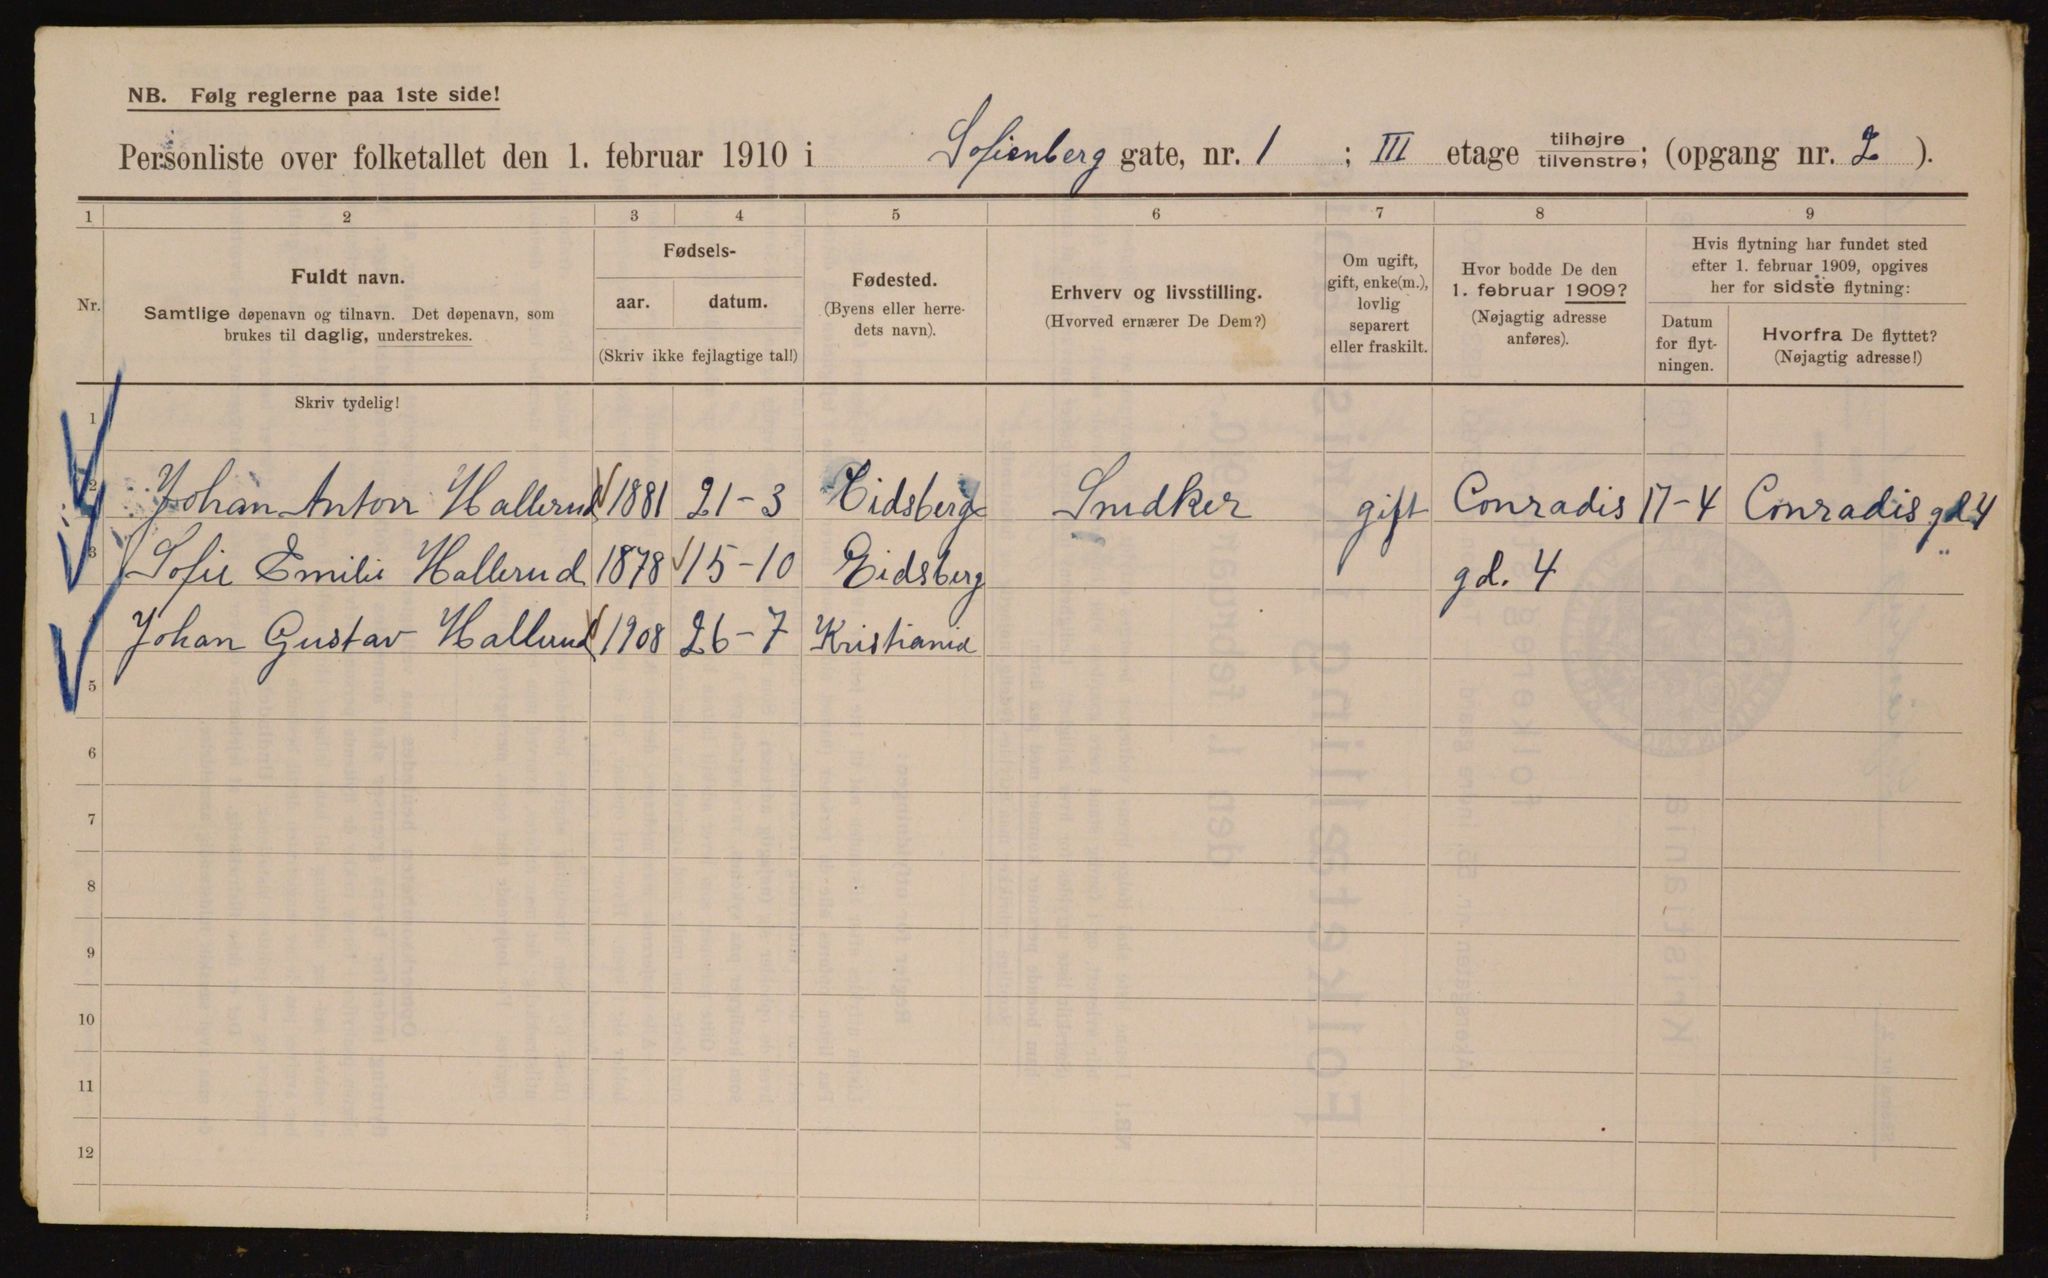 NB. Følg reglerne paa 1ste side!
Personliste over folketallet den 1. februar 1910 i Sofienberg gate, nr. 1 ; III etage tilhøjre / tilvenstre; (opgang nr. 2 ).
1 2 3 4 5 6 7 8 9
Nr.
Fuldt navn.
Samtlige døpenavn og tilnavn. Det døpenavn, som
brukes til daglig, understrekes.
Fødsels-
aar. datum.
(Skriv ikke fejlagtige tal!)
Fødested.
(Byens eller herre-
dets navn).
Erhverv og livsstilling.
(Hvorved ernærer De Dem?)
Om ugift,
gift, enke(m.),
lovlig
separert
eller fraskilt.
Hvor bodde De den
1. februar 1909?
(Nøjagtig adresse
anføres).
Hvis flytning har fundet sted
efter 1. februar 1909, opgives
her for sidste flytning:
Datum
for flyt-
ningen.
Hvorfra De flyttet?
(Nøjagtig adresse!)
Skriv tydelig!
1
2 Johan Anton Hallerud 1881 21-3 Eidsberg Snedker gift Conradis 17-4 Conradis gd. 4
3 Sofie Emilie Hallerud 1878 15-10 Eidsberg gd. 4 "
Johan Gustav Hallerud 1908 26-7 Kristiania
5
6
7
8
9
10
11
12